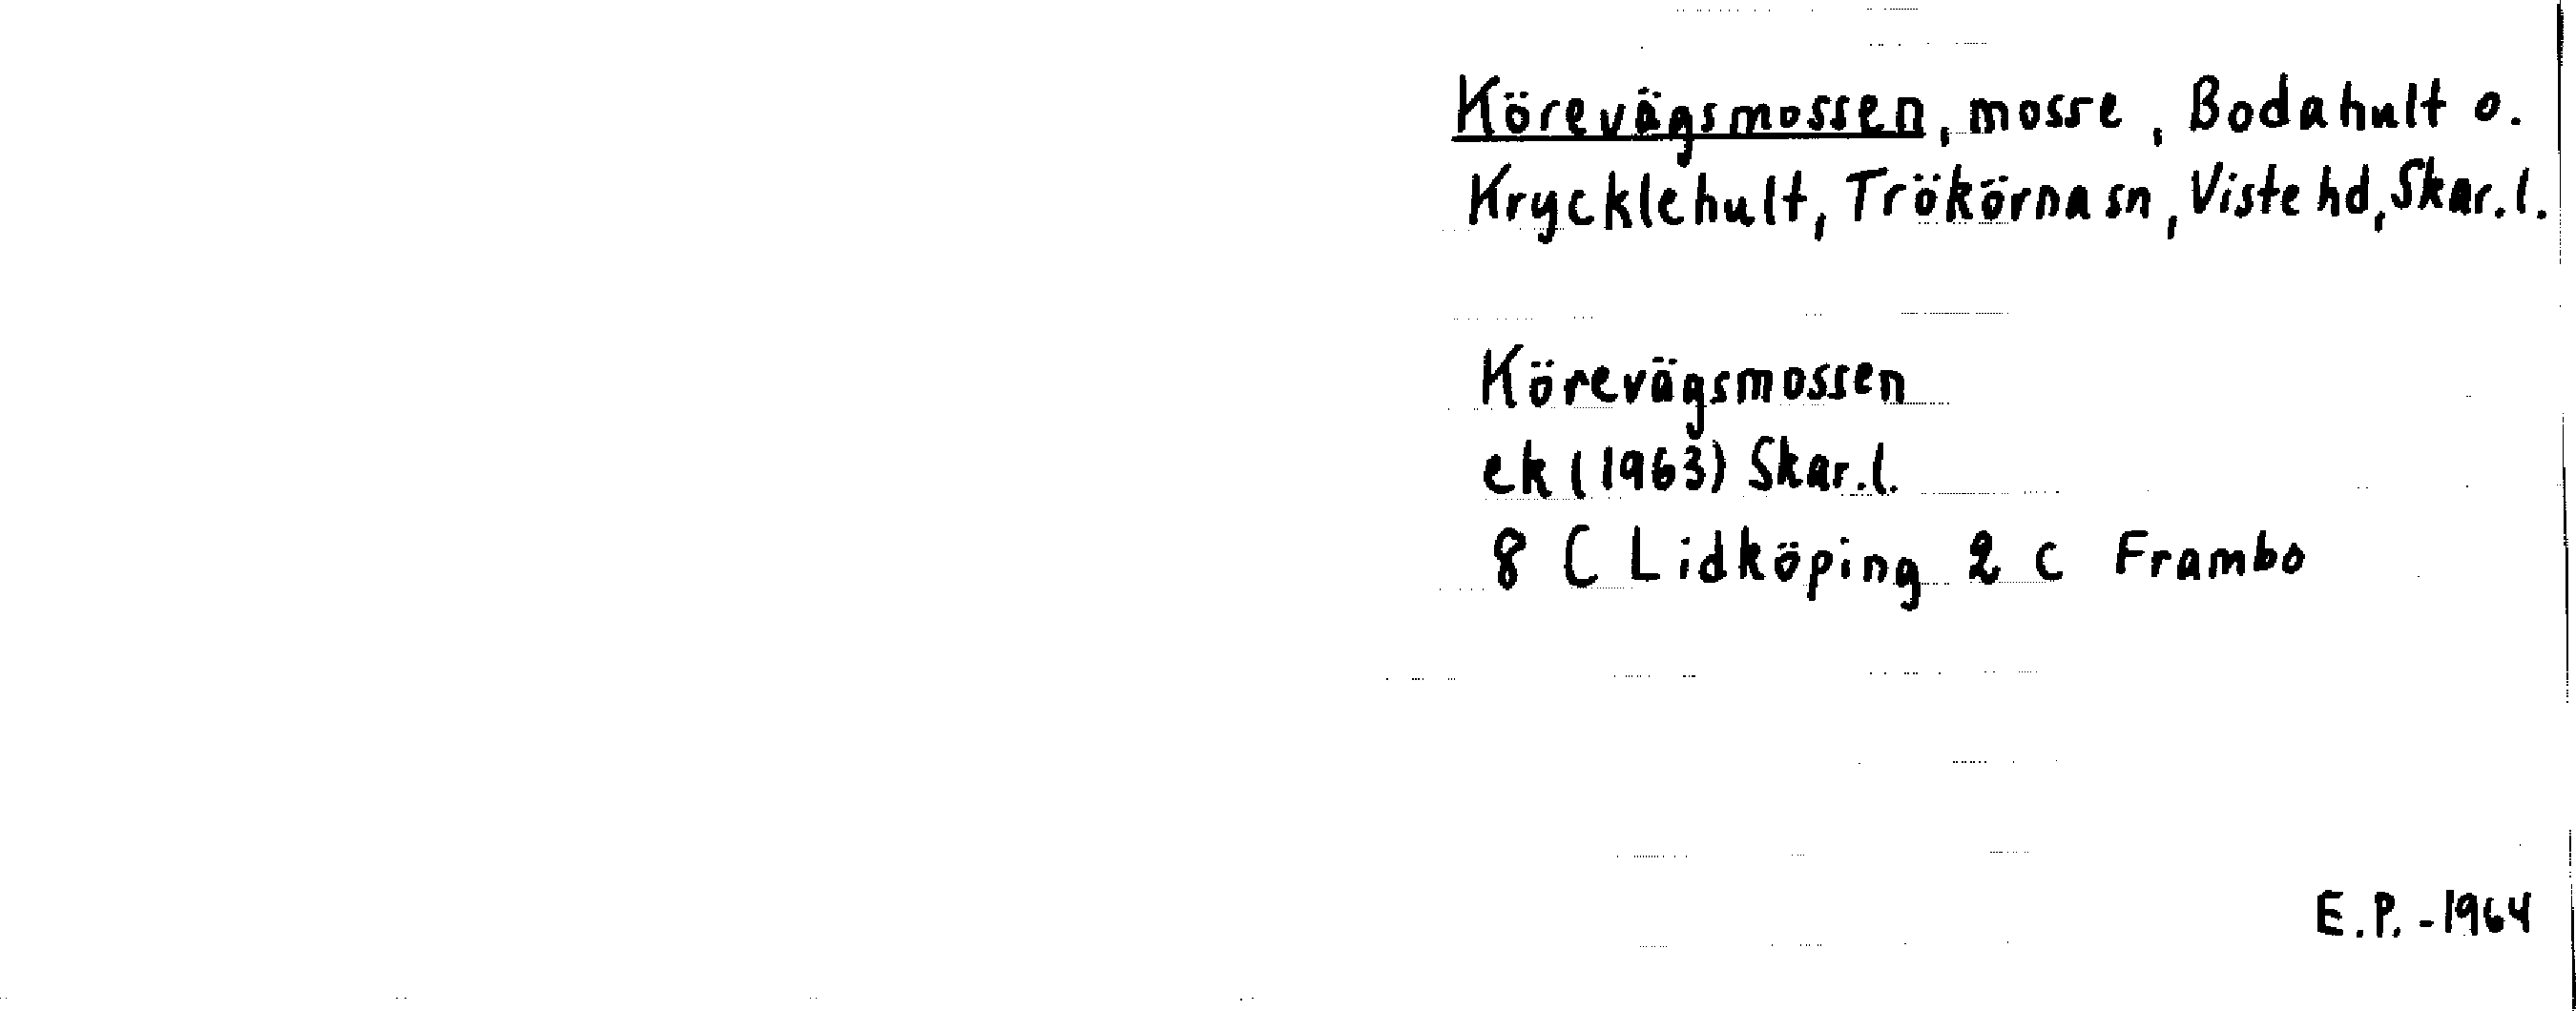 Körevägsmossen, mosse, Bodahult o.
Krycklehult, Trökörna sn, Viste hd, Skar.l.
Körevägsmossen
ek (1963) Skar.l.
8 C Lidköping 2 c Frambo
E.P. - 1964